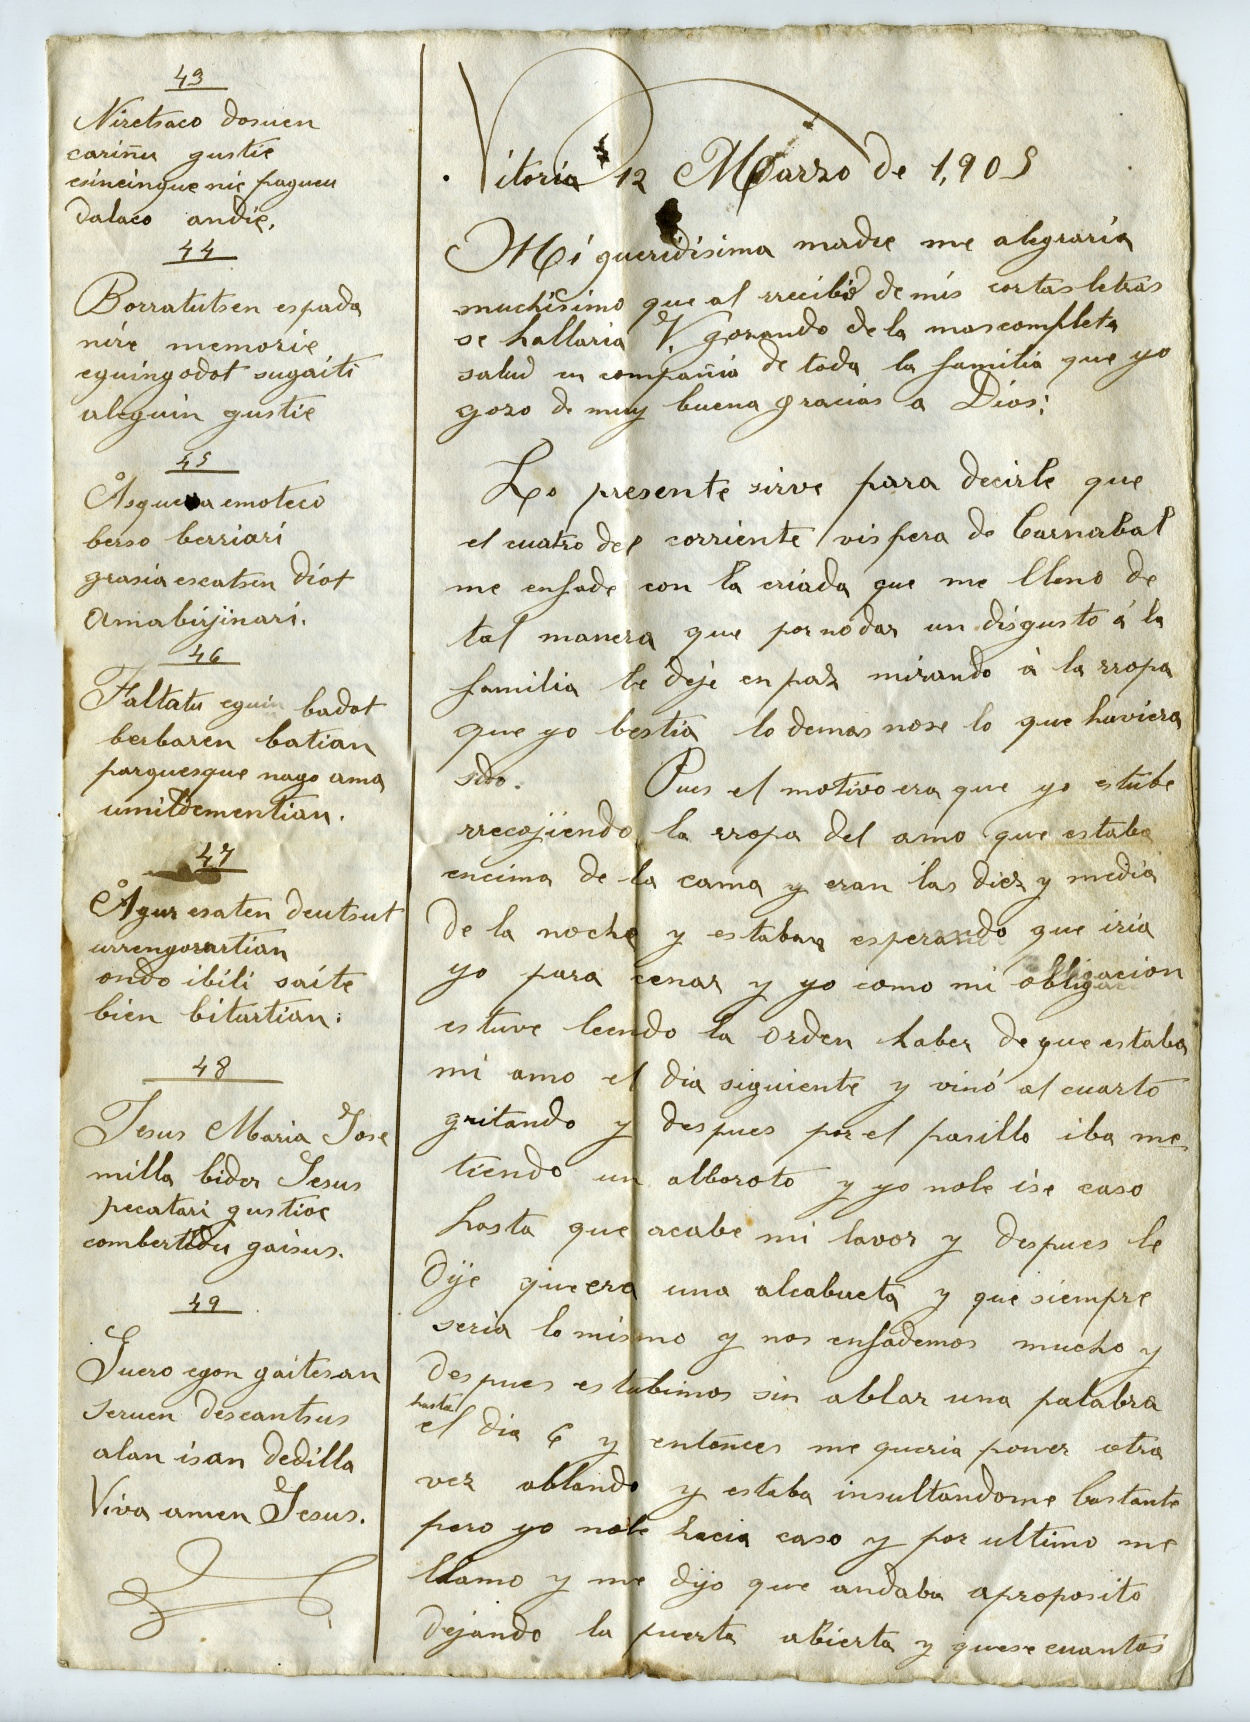 43
Niretsaco dosuen
cariñu gustie
esincingue nic pagueu
dalaco andie.
44
Borratutsen espada
nire memorie
eguingodot sugaiti
aleguin gustie
45
Asquera emoteco
berso berriari
grasia escatsen diot
Amabirjinari.
46
Faltatu eguin badot
berbaren batian
parquesque nago ama
umildementian.
47
Agur esaten deutsut
urrengorartian
ondo ibili saite
bien bitartian.
48
Jesus Maria Jose
milla bider Jesus
pecatari gustioc
combertidu gaisus.
49
Suero egon gaitesan
seruen descantsus
alan isan dedilla
Viva amen Jesus.
Vitoria 12 Marzo de 1,905
Mi queridisima madre me alegraria
muchisimo que al rrecibir de mis cortas letras
se hallaria V. gozando de la mas completa
salud en compañia de toda la familia que yo
gozo de muy buena gracias a Dios;
La presente sirve para decirle que
el cuatro del corriente vispera de Carnabal
me enfade con la criada que me lleno de
tal manera que por no dar un disgusto á la
familia le deje en paz mirando á la rropa
que yo bestia lo demas nose lo que haviera
sido. Pues el motivo era que yo estube
rrecojiendo la rropa del amo que estaba
encima de la cama y eran las diez y media
de la noche y estaban esperando que iria
yo para cenar y yo como mi obligacion
estuve leendo la orden haber de que estaba
mi amo el dia siguiente y vinó al cuarto
gritando y despues por el pasillo iba me
tiendo un alboroto y yo nole ise caso
hasta que acabe mi lavor y despues le
dije que era una alcabueta y que siempre
seria lo mismo y nos enfademos mucho y
despues estubimos sin ablar una palabra
hasta
el dia 6 y entonces me queria poner otra
vez ablando y estaba insultandome bastante
pero yo nole hacia caso y por ultimo me
llamo y me dijo que andaba aproposito
dejando la puerta abierta y quese cuantos